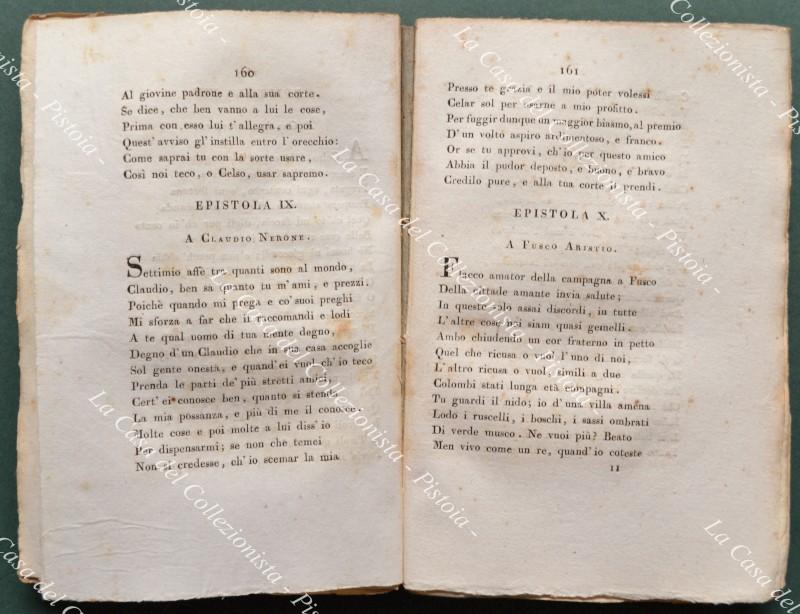 160
Al giovine padrone e alla sua corte.
Se dice, che ben vanno a lui le cose,
Prima con esso lui t'allegra, e poi
Quest'avviso gl'instilla entro l'orecchio:
Come saprai tu con la sorte usare,
Così noi teco, o Celso, usar sapremo.
EPISTOLA IX.
A CLAUDIO NERONE.
Settimio affè tra quanti sono al mondo,
Claudio, ben sa quanto tu m'ami, e prezzi.
Poichè quando mi prega e co' suoi preghi
Mi sforza a far che il raccomandi e lodi
A te qual uomo di tua mente degno,
Degno d'un Claudio che in sua casa accoglie
Sol gente onesta, e quand'ei vuol ch'io teco
Prenda le parti de' più stretti amici,
Cert'ei conosce ben, quanto si stenda
La mia possanza, e più di me il conosce.
Molte cose e poi molte a lui diss'io
Per dispensarmi; se non che temei
Non il credesse, ch'io scemar la mia
161
Presso te grazia e il mio poter volessi
Celar sol per usarne a mio profitto.
Per fuggir dunque un maggior biasmo, al premio
D'un volto aspiro ardimentoso, e franco.
Or se tu approvi, ch'io per questo amico
Abbia il pudor deposto, e buono, e bravo
Credilo pure, e alla tua corte il prendi.
EPISTOLA X.
A FUSCO ARISTIO.
Flacco amator della campagna a Fusco
Della cittade amante invia salute;
In questo solo assai discordi, in tutte
L'altre cose noi siam quasi gemelli.
Ambo chiudendo un cor fraterno in petto
Quel che ricusa o vuol l'uno di noi,
L'altro ricusa o vuol, simili a due
Colombi stati lunga età compagni.
Tu guardi il nido; io d'una villa amena
Lodo i ruscelli, i boschi, i sassi ombrati
Di verde musco. Ne vuoi più? Beato
Men vivo come un re, quand'io coteste
11
La Casa del Collezionista - Pistoia -